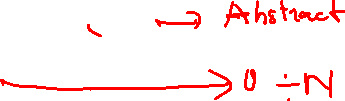 → Abstract
→ 0 ÷ N